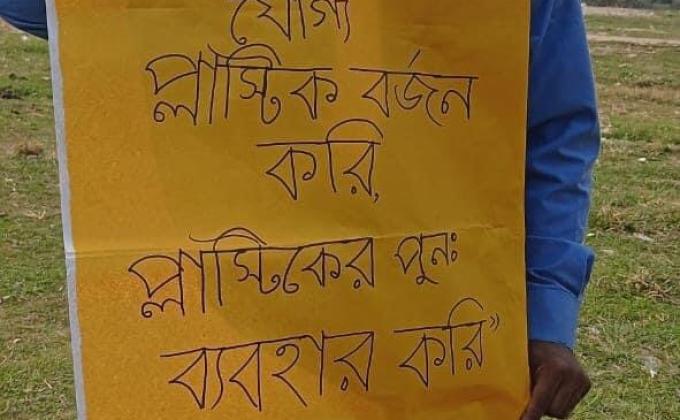 যোগ্য
প্লাস্টিক বর্জন
করি,
প্লাস্টিকের পুনঃ
ব্যবহার করি”